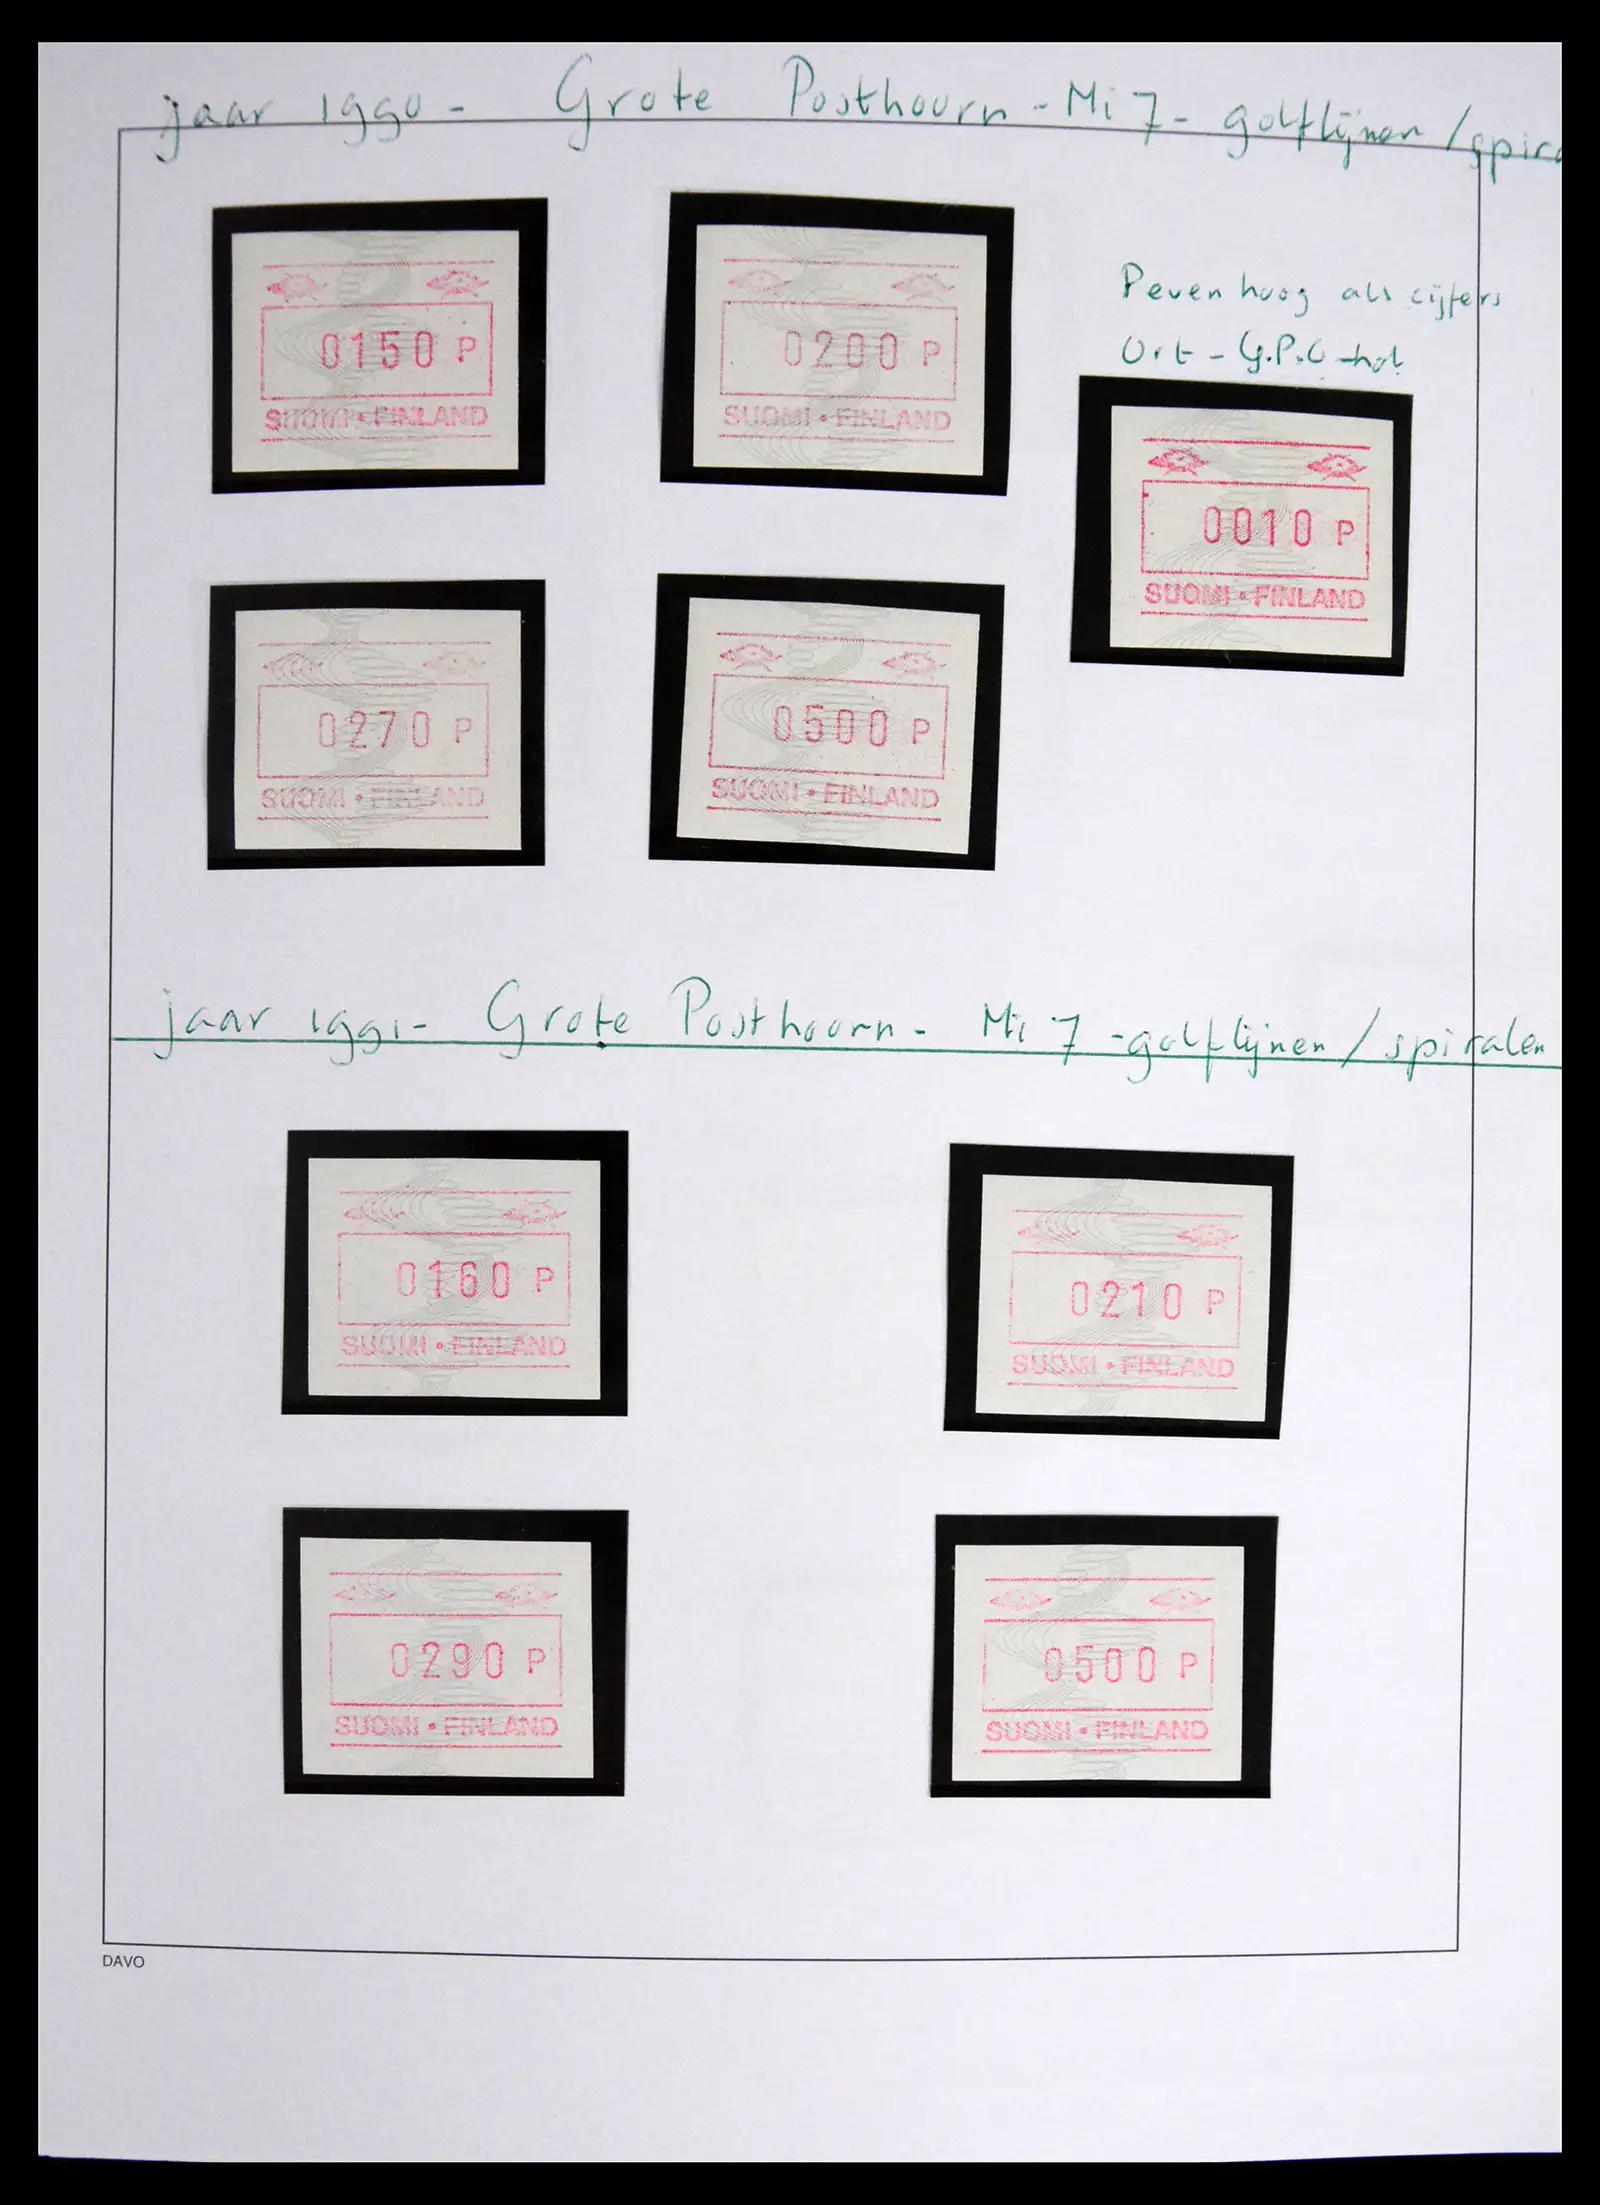 jaar 1990 - Grote Posthoorn - Mi 7 - golflijnen / spira
0150 P
SUOMI • FINLAND
0200 P
SUOMI • FINLAND
P even hoog als cijfers
Ort - G.P.O - hol
0010 P
SUOMI • FINLAND
0270 P
SUOMI • FINLAND
0500 P
SUOMI • FINLAND
jaar 1991 - Grote Posthoorn - Mi 7 - golflijnen / spiralen
0160 P
SUOMI • FINLAND
0210 P
SUOMI • FINLAND
0290 P
SUOMI • FINLAND
0500 P
SUOMI • FINLAND
DAVO